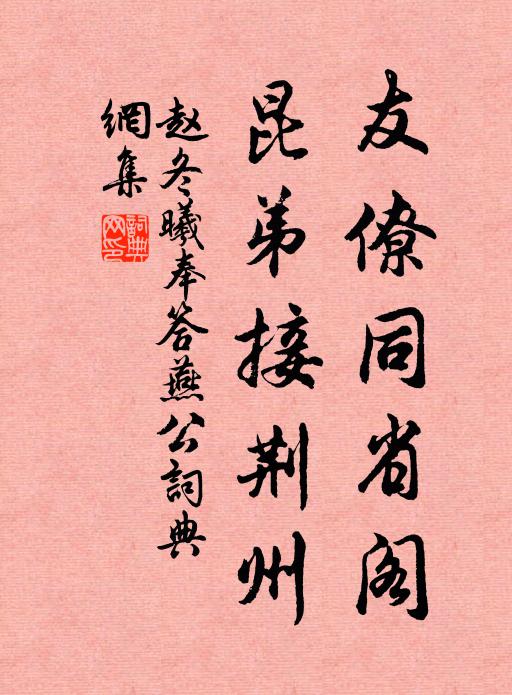 友僚同省阁
昆弟接荆州
赵冬曦奉答燕公詞典
網集
詞典
网印